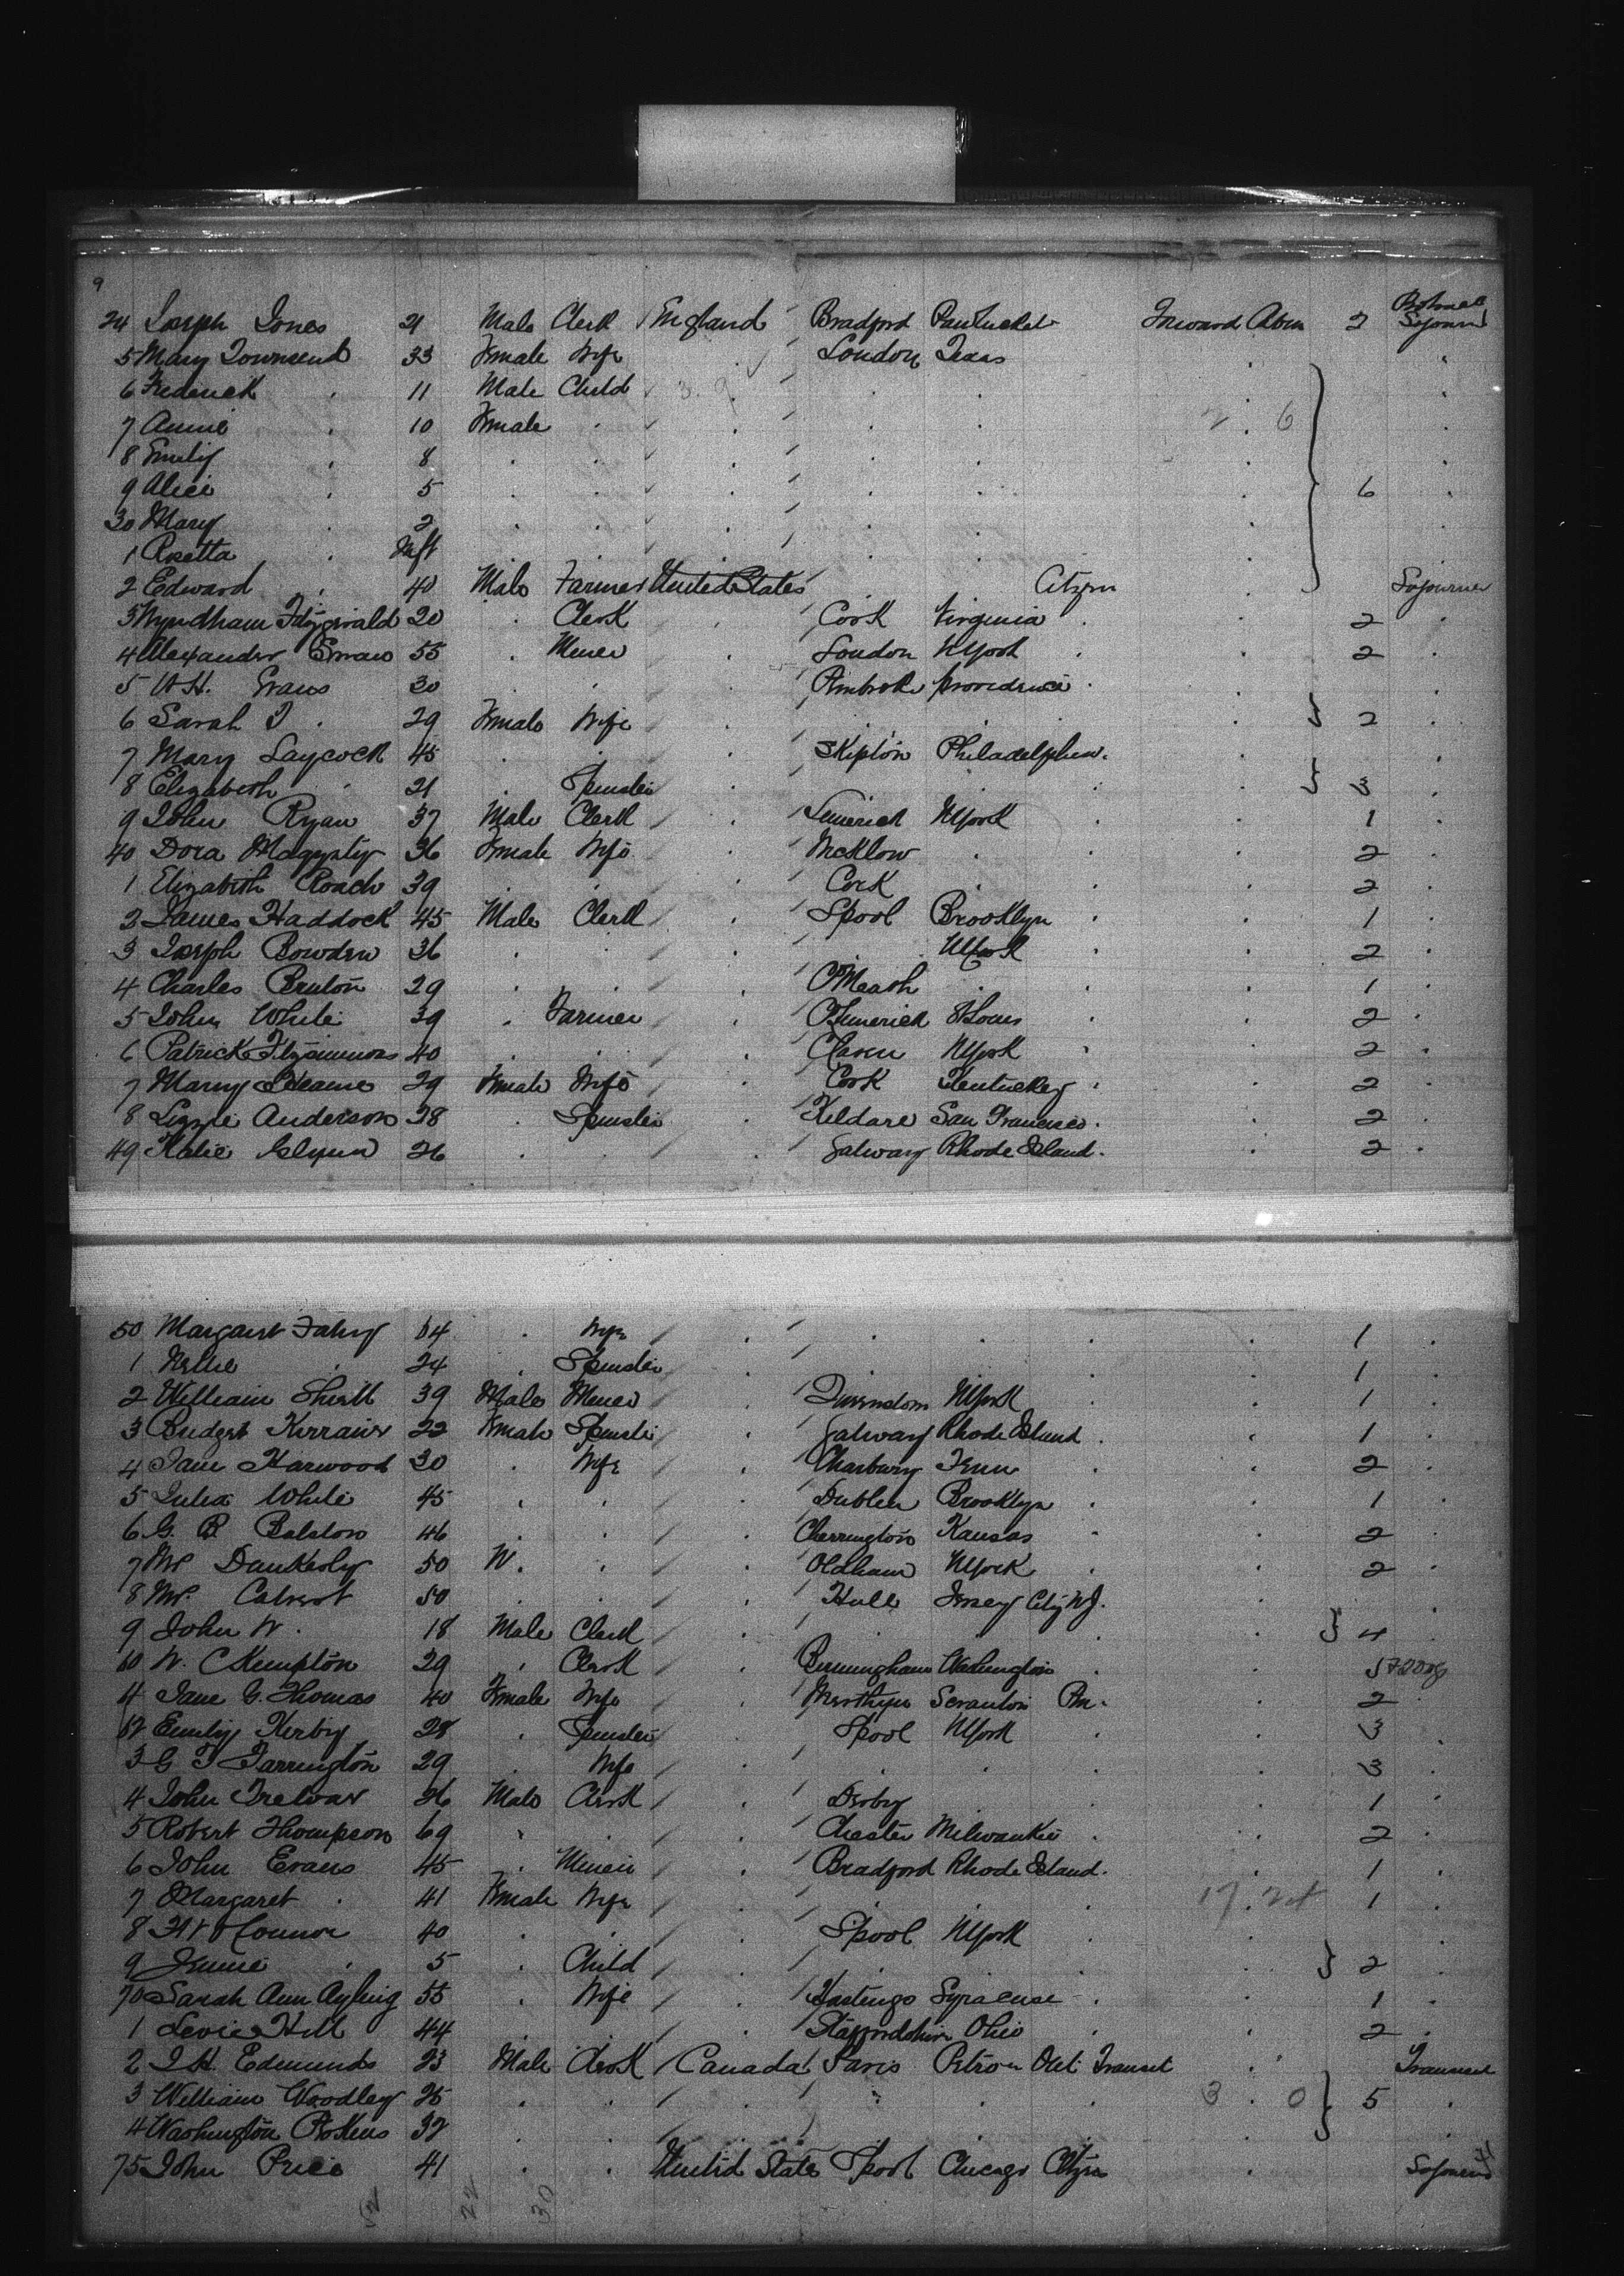 9
24 Joseph Jones 21 Male Clerk England Bradford Pawtucket Forward Abm 2 Sojourn
5 Mary Townsend 33 Female Wife London Texas
6 Frederick 11 Male Child
7 Annie 10 Female 6
8 Emily 8
9 Alice 5 6
30 Mary 2
1 Rosetta Inft
2 Edward 40 Male Farmer United States Citzn Sojourner
3 Wyndham Fitzgerald 20 Clerk Cork Virginia 2
4 Alexander 55 Miner London NYork 2
5 W H. Evans 30 Pmbroke Providence
6 Sarah J 29 Female Wife 2
7 Mary Laycock 45 Skipton Philadelphia
8 Elizabeth 21 Spinster 3
9 John Ryan 37 Male Clerk Limerick NYork 1
40 Dora 36 Female Wife Wicklow 2
1 Elizabeth Roach 39 Cork 2
2 James Haddock 45 Male Clerk Lpool Brooklyn 1
3 Joseph Bowden 36 NYork 2
4 Charles Bruton 29 1
5 John White 39 Farmer 2
6 Patrick Fitzsimmons 40 NYork 2
7 Mary 29 Female Wife Cork Kentucky 2
8 Lizzie Anderson 28 Spinster Kildare San Francisco 2
49 Katie Glynn 26 Galway Rhode Island 2
50 Margaret Fahey 64 Wife 1
1 Nellie 24 Spinster 1
2 William 39 Male Miner NYork 1
3 Bridget 22 Female Spinster Galway Rhode Island 1
4 Jane Harwood 30 Wife Charbury Tenn 2
5 Julia White 45 Dublin Brooklyn 1
6 G. B. Balston 46 Cherrington Kansas 2
7 Mrs Dunkerly 50 W. Oldham NYork 2
8 Mrs. Calvert 50 Hull Jersey City NJ.
9 John W. 18 Male Clerk 4
60 W. C Kempton 29 Clerk Birmingham Washington
61 Jane G. Thomas 40 Female Wife Merthyr Scranton Pa. 2
62 Emily Kerby 28 Spinster Lpool NYork 3
3 G T Farrington 29 Wife 3
4 John Trelvar 26 Male Clerk Derby 1
5 Robert Thompson 69 Chester Milwaukie 2
6 John Evans 45 Miner Bradford Rhode Island 1
7 Margaret 41 Female Wife 17 1
8 O Connor 40 Lpool NYork
9 Jennie 5 Child 2
70 Sarah Ann Ayling 55 Wife Hastings Syracuse 1
1 Levie Hill 44 Staffordshire Ohio 2
2 J H. Edmunds 23 Male Clerk Canada Paris Ont Transit Transit
3 William Woodley 25 3 0 5
4 Washington 32
75 John Price 41 United States Lpool Chicago Citzn Sojourn
52 22 30